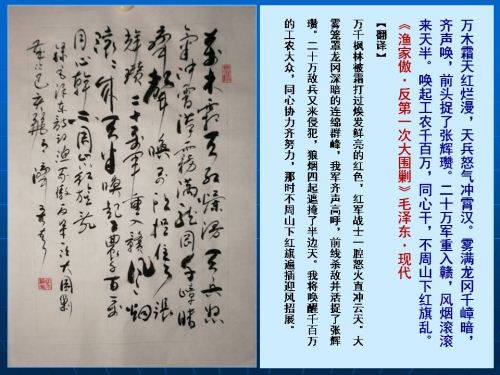 万木霜天红烂漫，天兵怒气冲霄汉。雾满龙冈千嶂暗，
齐声唤，前头捉了张辉瓒。二十万军重入赣，风烟滚滚
来天半。唤起工农千百万，同心干，不周山下红旗乱。
《渔家傲·反第一次大围剿》毛泽东·现代
【翻译】
万千枫林被霜打过焕发鲜亮的红色，红军战士一腔怒火直冲云天。大
雾笼罩龙冈深暗的连绵群峰，我军齐声高呼，前线杀敌并活捉了张辉
瓒。二十万敌兵又来侵犯，狼烟四起遮掩了半边天。我将唤醒千百万
的工农大众，同心协力齐努力，那时不周山下红旗遍插迎风招展。
萬木霜天紅爛漫天兵怒
氣沖霄漢霧滿龍岡千嶂暗
齊聲喚前頭捉張
輝瓚二十萬軍重入贛風煙
滾滾來天半喚起工農百萬
同心幹不周山下紅旗亂